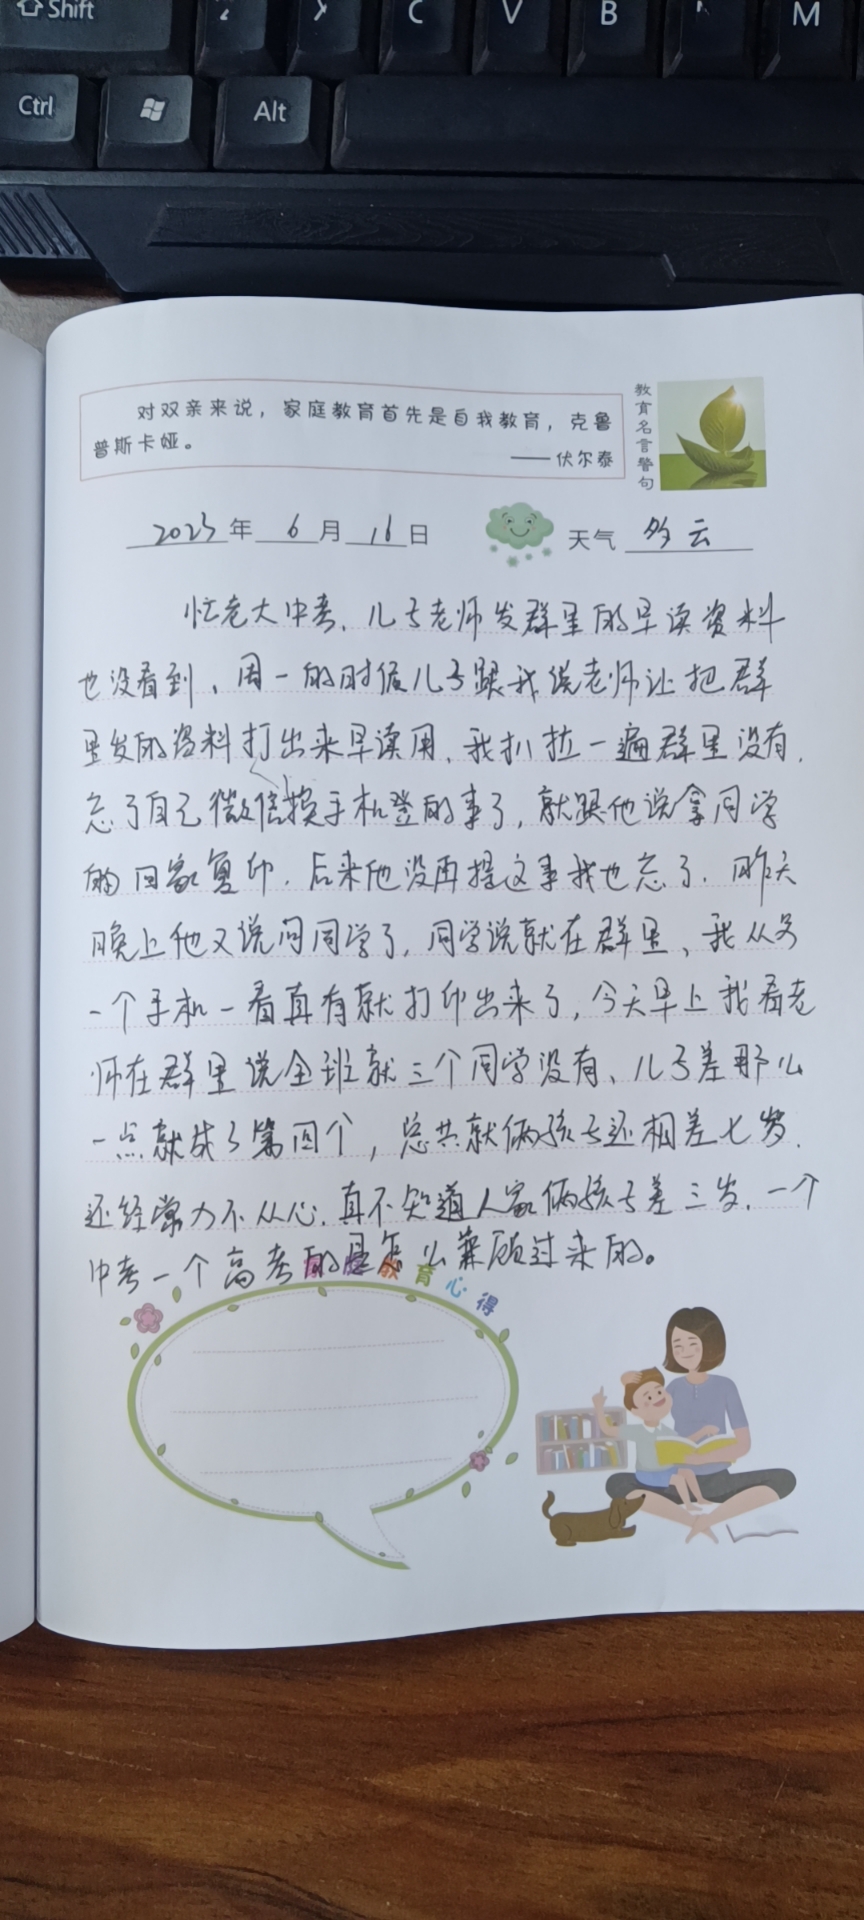 Shift
Z X C V B N M
Ctrl
Alt
对双亲来说，家庭教育首先是自我教育，克鲁
普斯卡娅。
——伏尔泰
教育名言警句
2023年6月16日
天气 多云
忙老大中考，儿子老师发群里的早读资料
也没看到，周一的时候儿子跟我说老师让把群
里发的资料打出来早读用，我扒拉一遍群里没有，
忘了自己微信换手机登的事了，就跟他说拿同学
的回家复印，后来他没再提这事我也忘了，昨天
晚上他又说问同学了，同学说就在群里，我从另
一个手机一看真有就打印出来了，今天早上我看老
师在群里说全班就三个同学没有，儿子差那么
一点就成了第四个，总共就俩孩子还相差七岁，
还经常力不从心，真不知道人家俩孩子差三岁，一个
中考一个高考的是怎么兼顾过来的。
教育心得